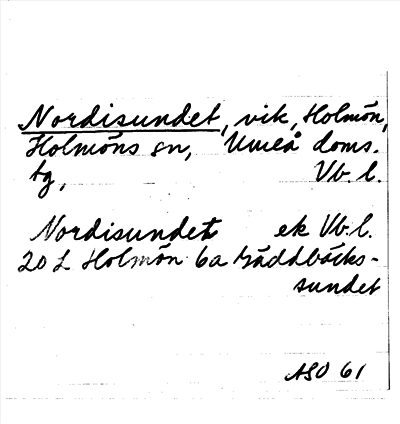 Nordisundet, vik, Holmön,
Holmöns sn, Umeå doms.
tg, Vb. l.
Nordisundet ek Vb. l.
20 L Holmön 6a Gäddbäcks-
sundet
ASO 61